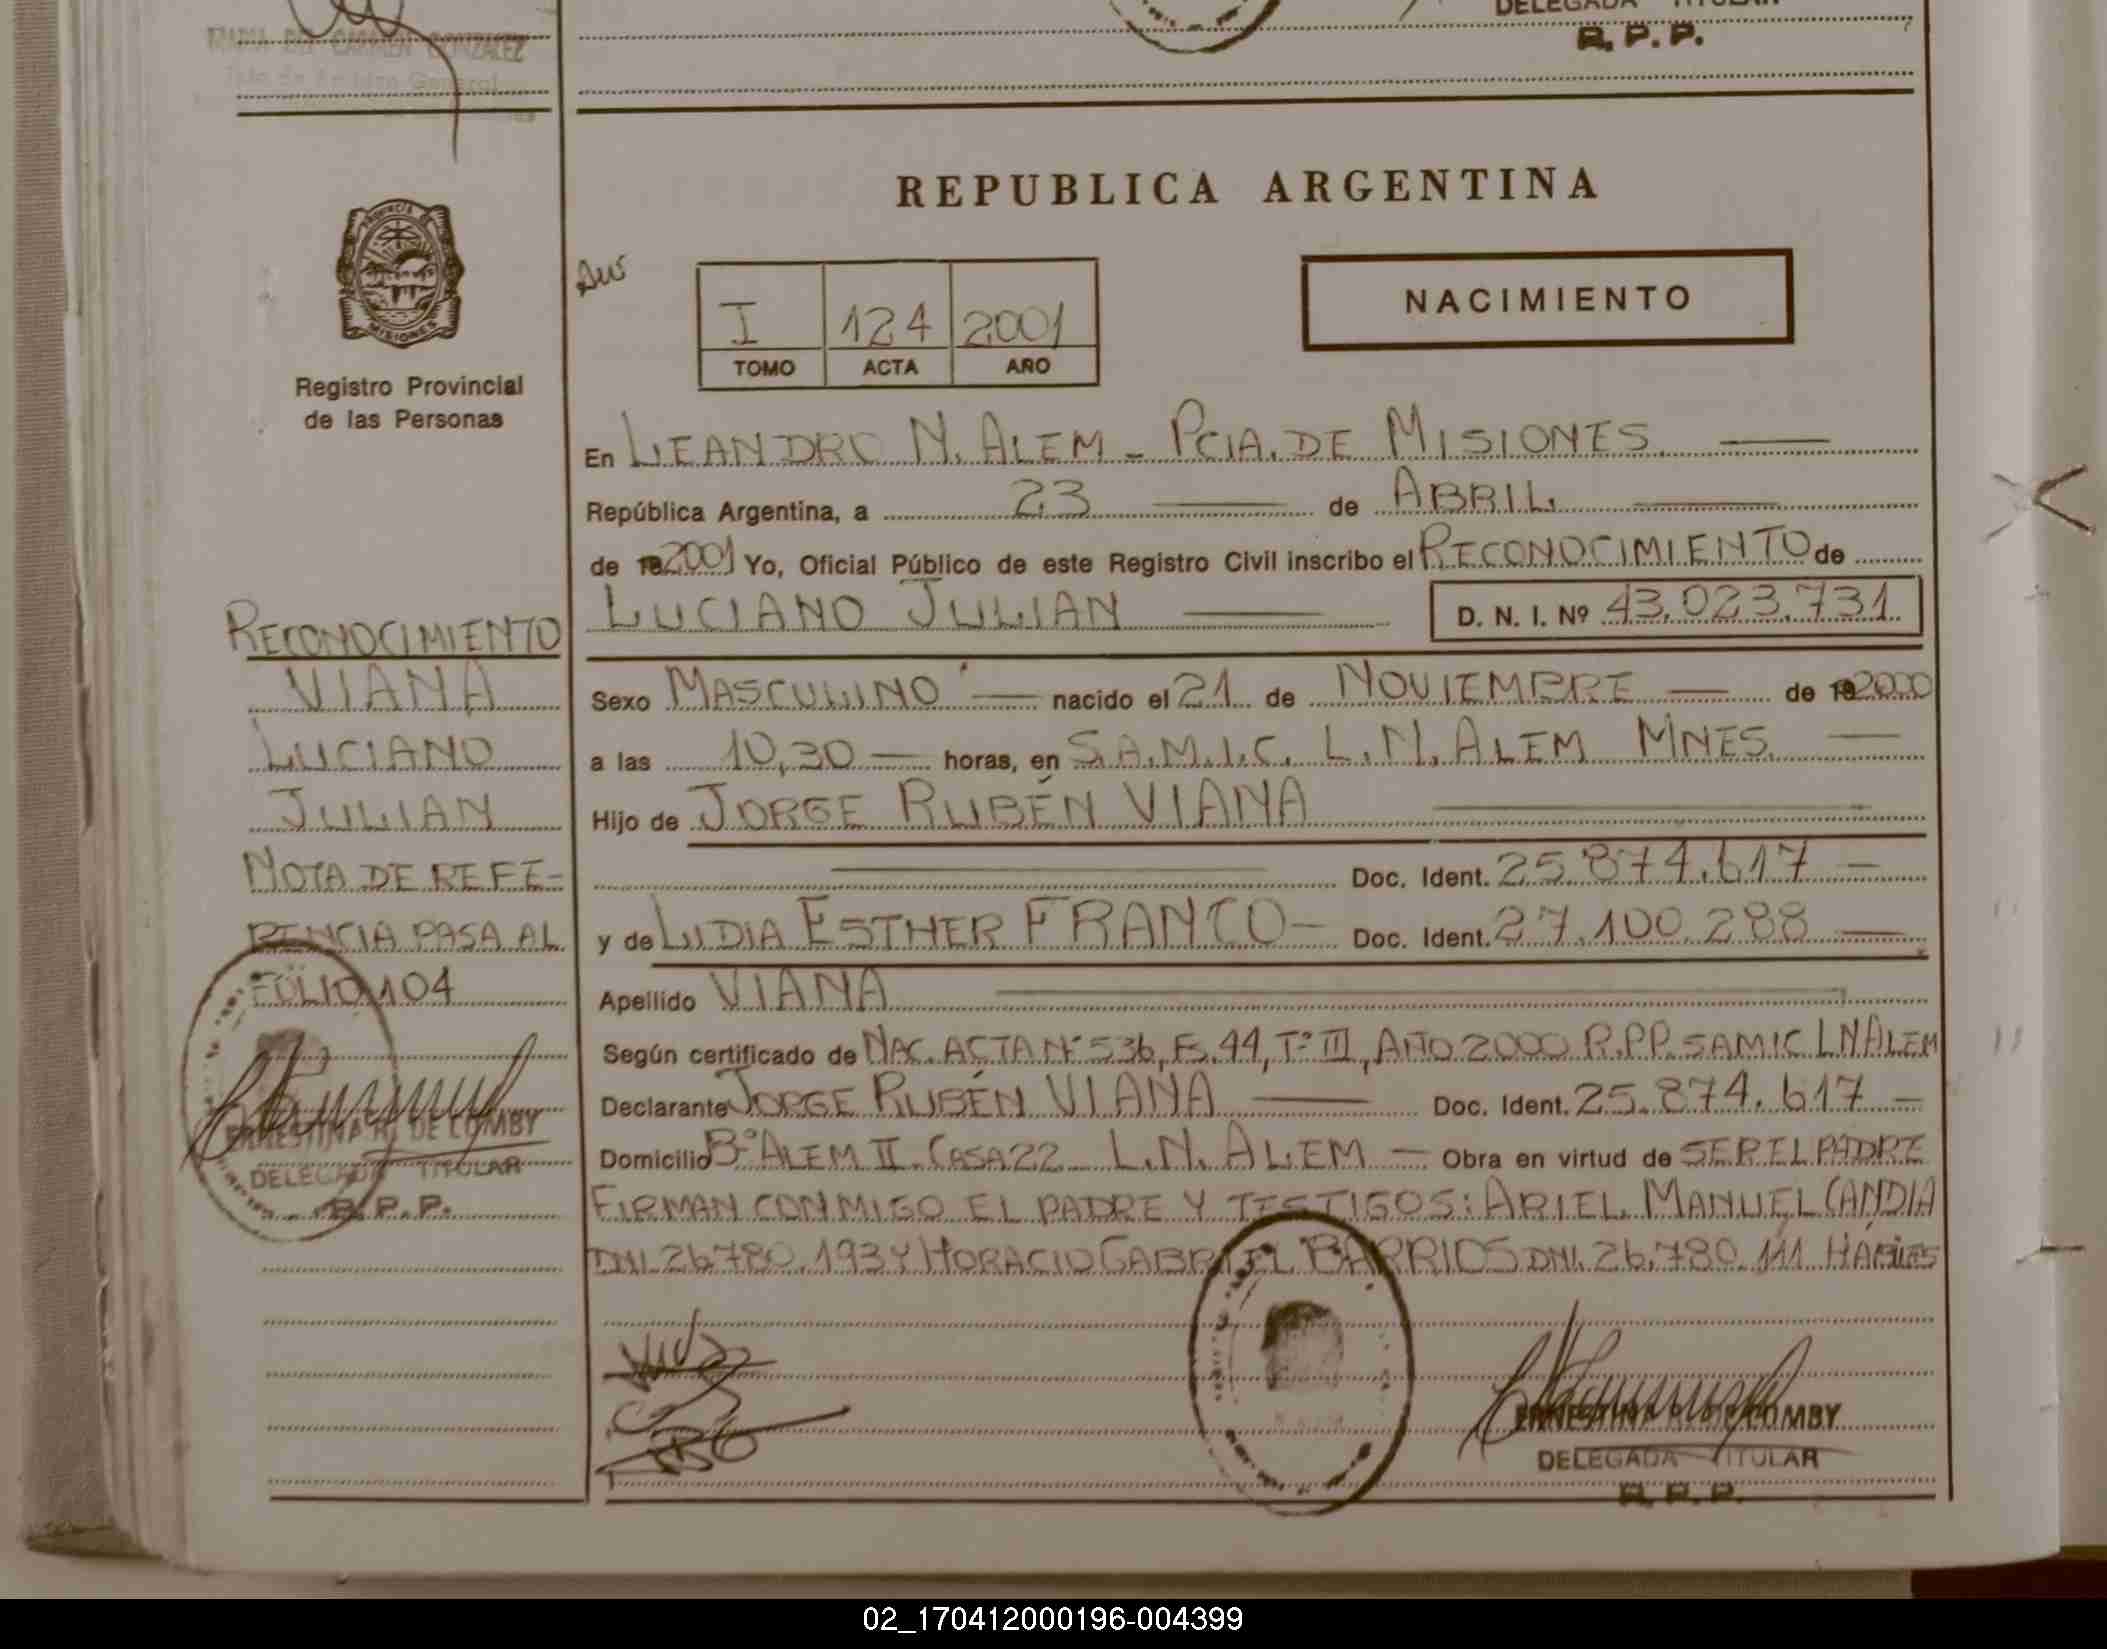 DELEGADA TITULAR
R. P. P.
MARIA DEL CARMEN GONZALEZ
REPUBLICA ARGENTINA
MISIONES
Registro Provincial
de las Personas
I 124 2001
TOMO ACTA AÑO
NACIMIENTO
En LEANDRO N. ALEM - PCIA. DE MISIONES.
República Argentina, a 23 de ABRIL
de 19 2001 Yo, Oficial Público de este Registro Civil inscribo el RECONOCIMIENTO de
LUCIANO JULIAN D. N. I. Nº 43.023.731
RECONOCIMIENTO
VIANA
LUCIANO
JULIAN
NOTA DE REFE-
RENCIA PASA AL
FOLIO 104
ERNESTINA R. DE LOMBY
DELEGADA TITULAR
R. P. P.
Sexo MASCULINO nacido el 21 de NOVIEMBRE de 19 2000
a las 10,30 horas, en S.A.M.I.C. L.N. ALEM MNES.
Hijo de JORGE RUBÉN VIANA
Doc. Ident. 25.874.617
y de LIDIA ESTHER FRANCO Doc. Ident. 27.100.288
Apellido VIANA
Según certificado de NAC. ACTA Nº 536, F. 44, Tº III, AÑO 2000 R.P.P. SAMIC L N ALEM
Declarante JORGE RUBÉN VIANA Doc. Ident. 25.874.617
Domicilio Bº ALEM II CASA 22 L.N. ALEM Obra en virtud de SER EL PADRE
FIRMAN CONMIGO EL PADRE Y TESTIGOS: ARIEL MANUEL CANDIA
DNI. 26.780.193 Y HORACIO GABRIEL BARRIOS DNI. 26.780.111 HÁBILES
ERNESTINA R. DE LOMBY
DELEGADA TITULAR
R. P. P.
02_170412000196-004399